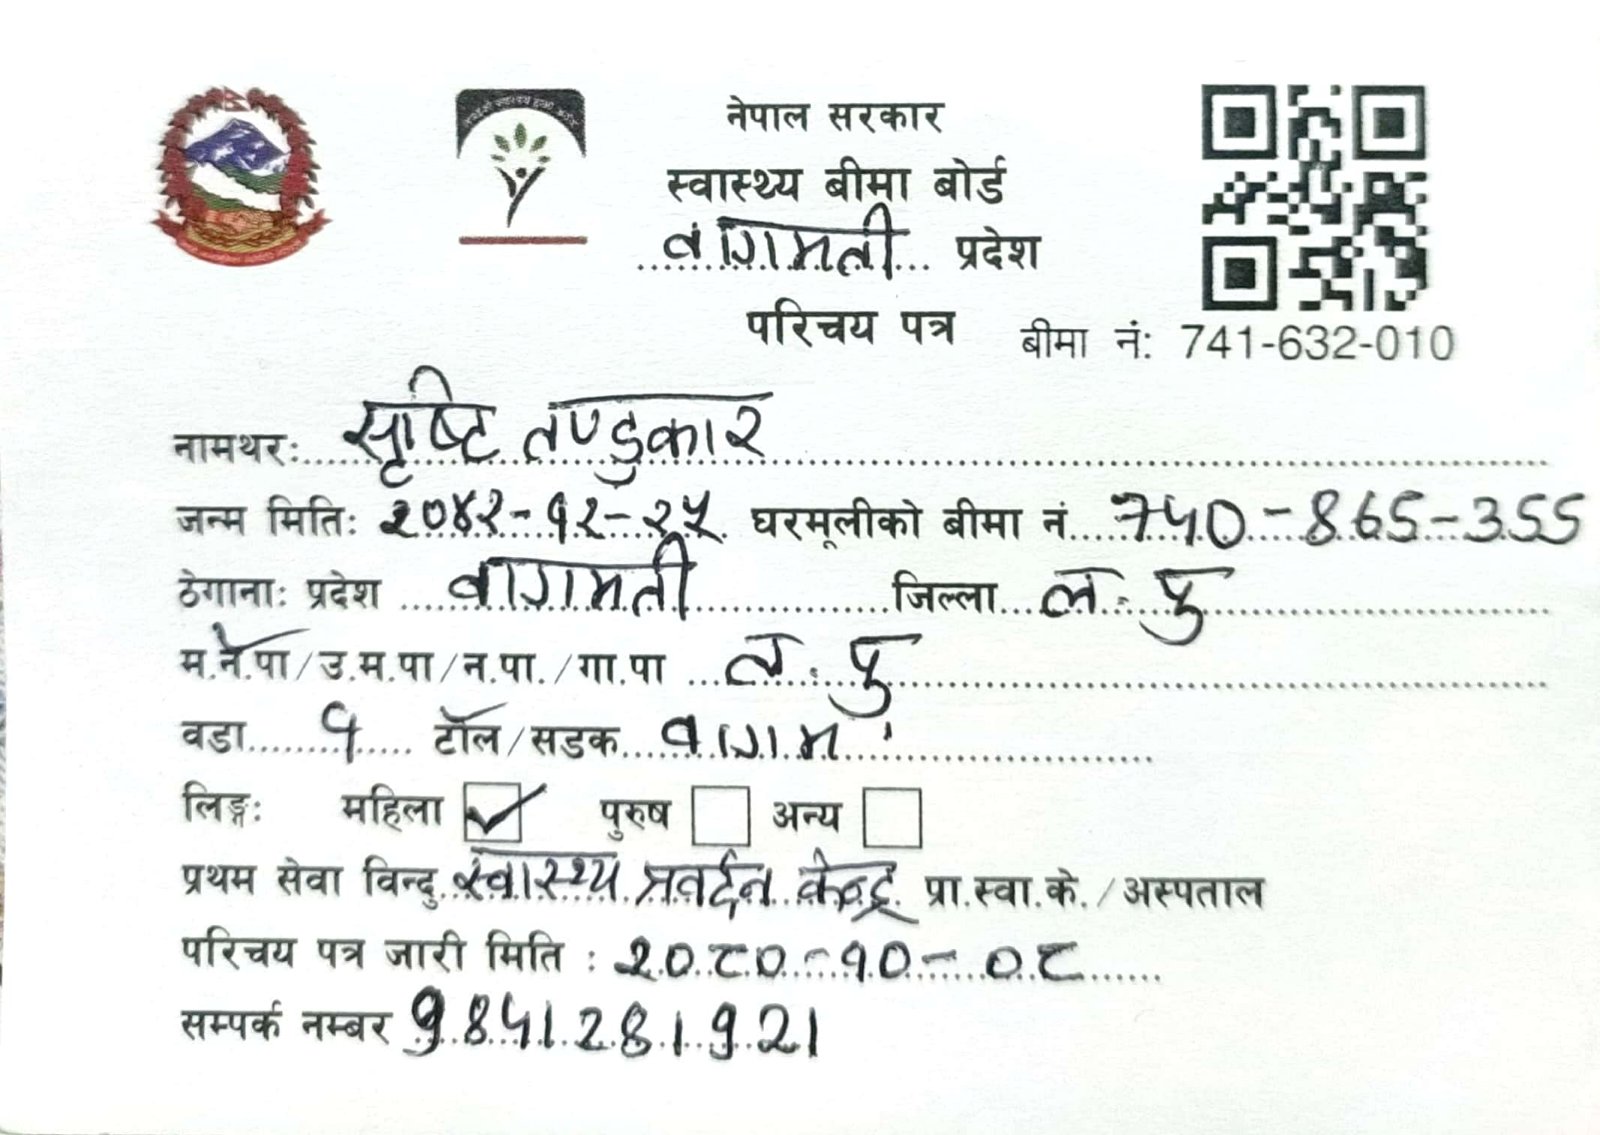 नेपाल सरकार
स्वास्थ्य बीमा बोर्ड
वागमती प्रदेश
परिचय पत्र
बीमा नं: 741-632-010
नामथर: सृष्टि तण्डुकार
जन्म मिति: २०४२-१२-२५ घरमूलीको बीमा नं. 740-865-355
ठेगाना: प्रदेश वागमती जिल्ला ल. पु
म.न.पा/उ.म.पा/न.पा./गा.पा ल. पु
वडा ९ टोल/सडक वागम
लिङ्ग: महिला ✓ पुरुष अन्य
प्रथम सेवा विन्दु स्वास्थ्य प्रवर्द्दन केन्द्र प्रा.स्वा.के./अस्पताल
परिचय पत्र जारी मिति : २०८०-१०-०८
सम्पर्क नम्बर 9841281921